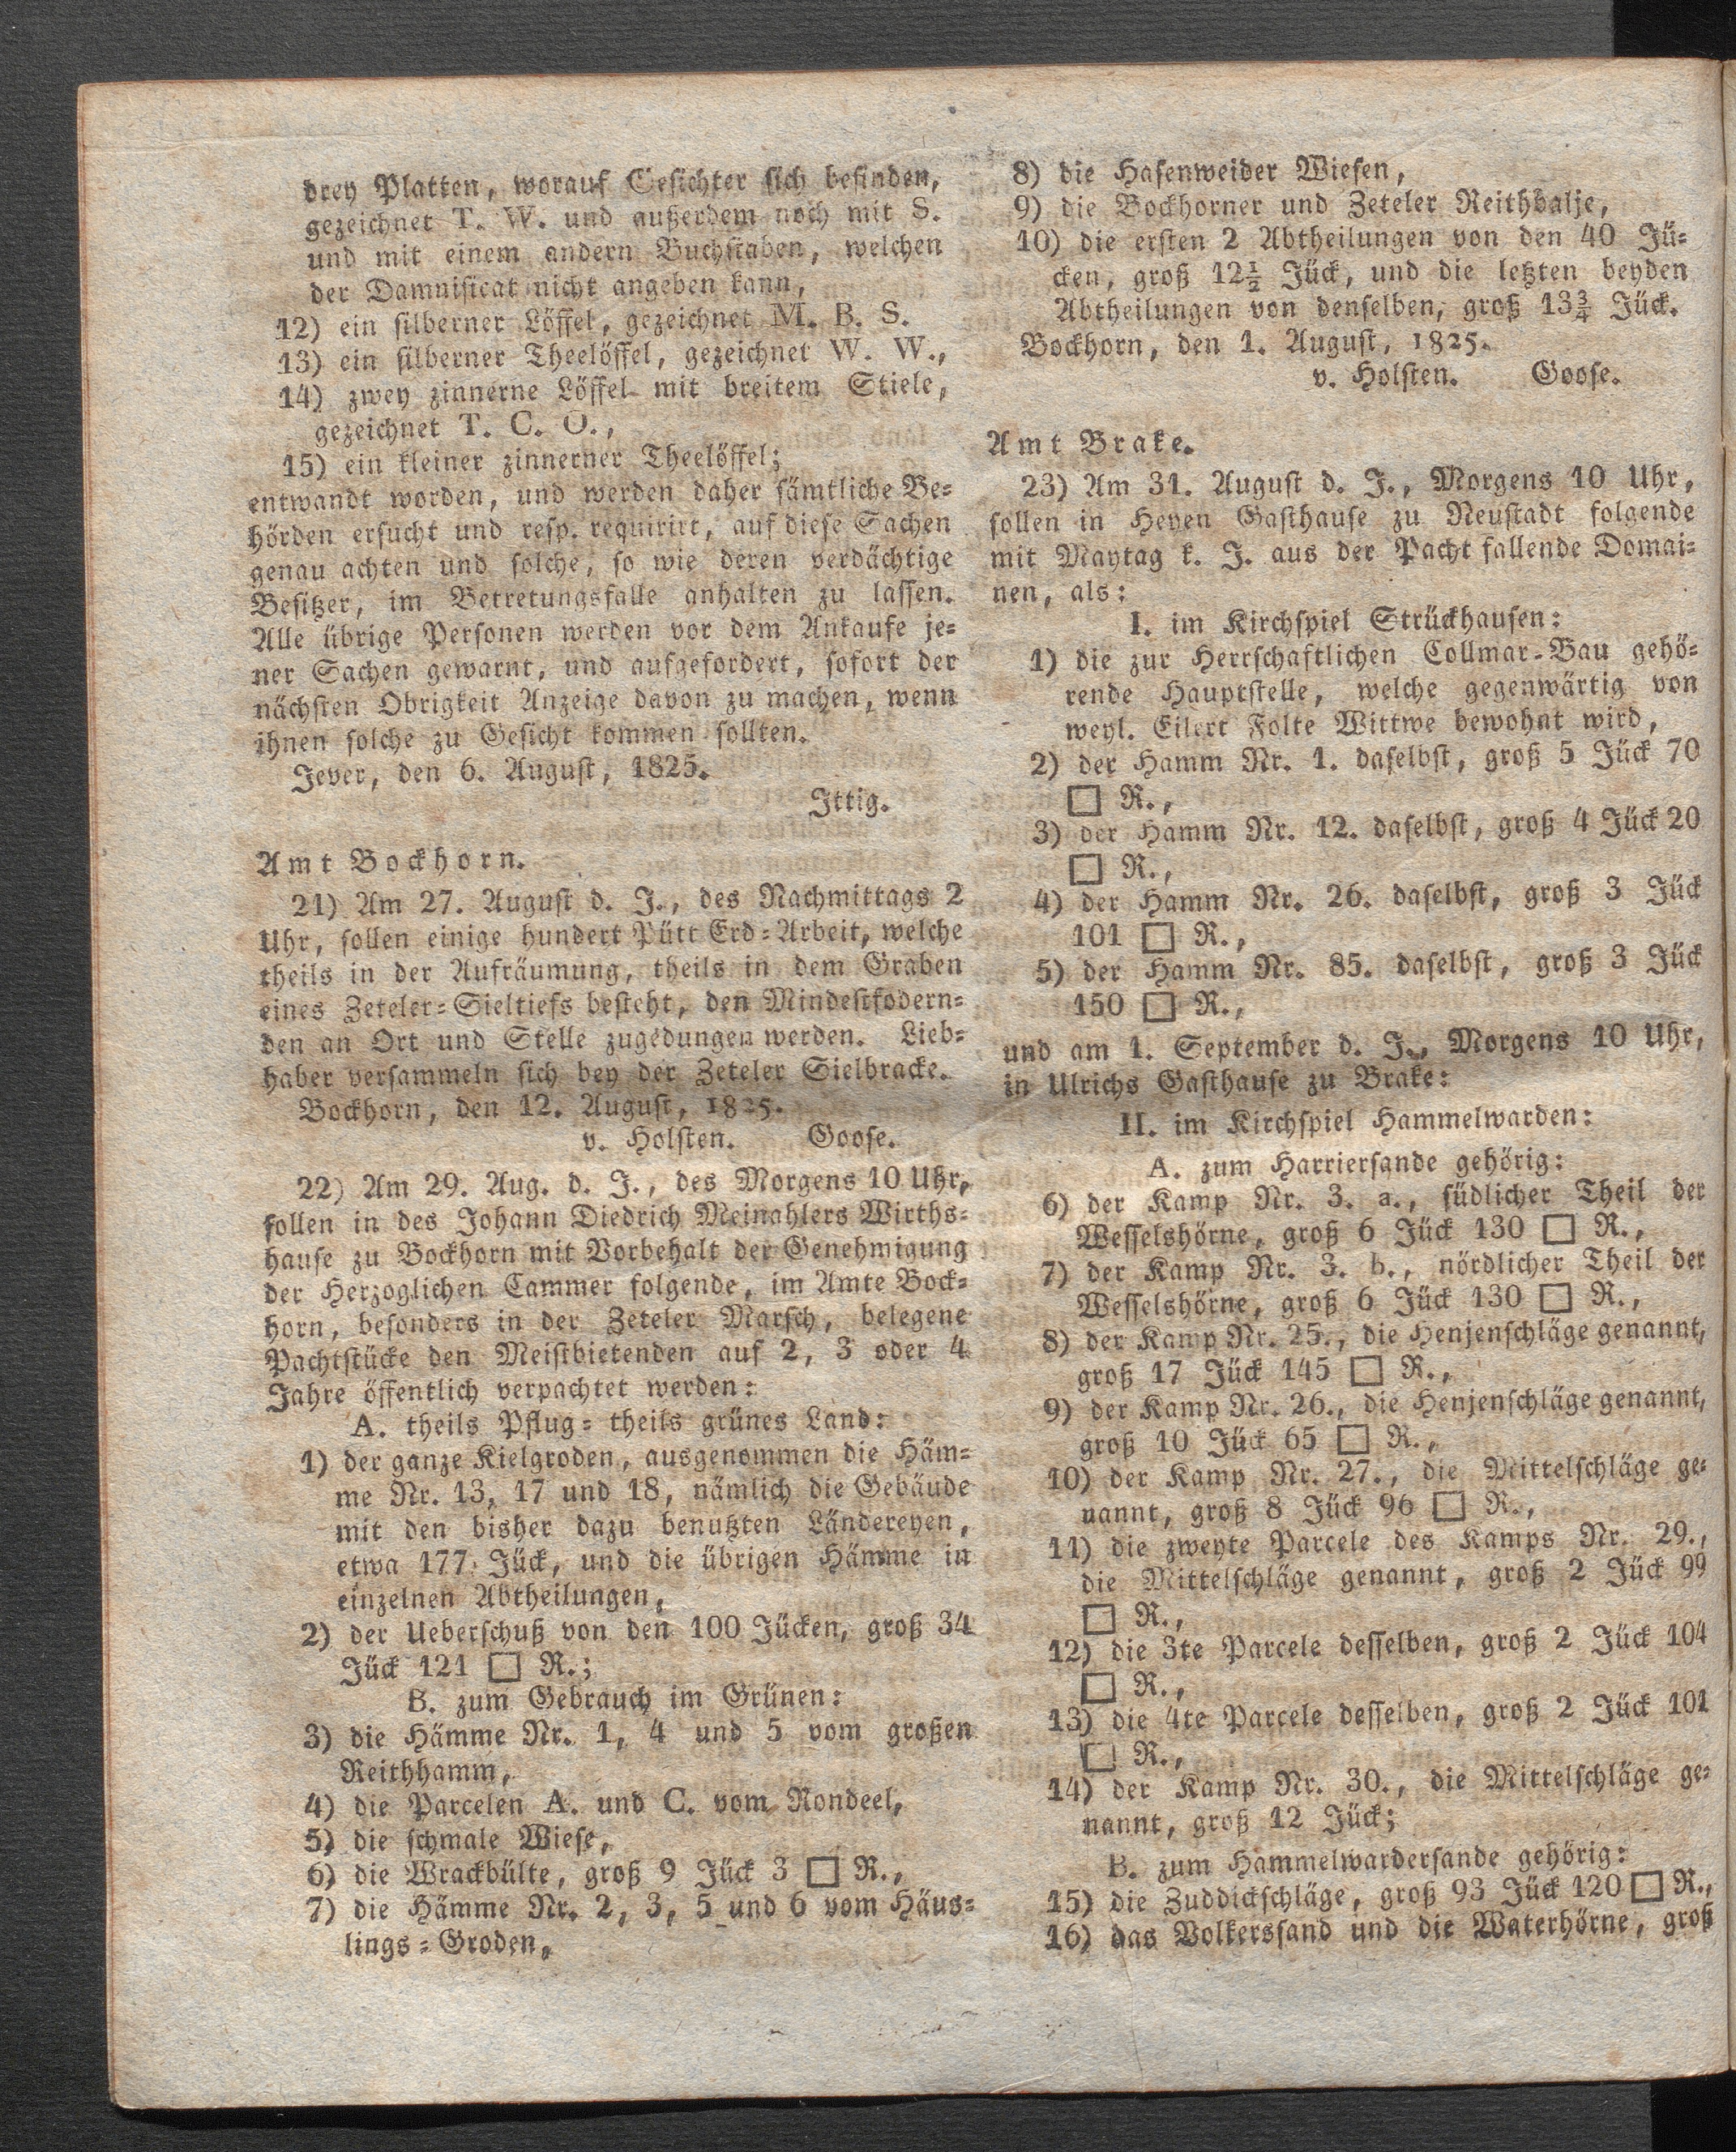 drey Platten, worauf Gesichter sich befinden,
gezeichnet T. W. und außerdem noch mit S.
und mit einem andern Buchstaben, welchen
der Damnificat nicht angeben kann,
12) ein silberner Löffel, gezeichnet M. B. S.
13) ein silberner Theelöffel, gezeichnet W. W.,
14) zwey zinnerne Löffel mit breitem Stiele,
gezeichnet T. C. O.,
15) ein kleiner zinnerner Theelöffel;
entwandt worden, und werden daher sämtliche Be=
hörden ersucht und resp. requirirt, auf diese Sachen
genau achten und solche, so wie deren verdächtige
Besitzer, im Betretungsfalle anhalten zu lassen.
Alle übrige Personen werden vor dem Ankaufe je=
ner Sachen gewarnt, und aufgefordert, sofort der
nächsten Obrigkeit Anzeige davon zu machen, wenn
ihnen solche zu Gesicht kommen sollten.
Jever, den 6. August, 1825.
Ittig.
Amt Bockhorn.
21) Am 27. August d. J., des Nachmittags 2
Uhr, sollen einige hundert Pütt Erd=Arbeit, welche
theils in der Aufräumung, theils in dem Graben
eines Zeteler=Sieltiefs besteht, den Mindestfodern=
den an Ort und Stelle zugedungen werden. Lieb=
haber versammeln sich bey der Zeteler Sielbracke.
Bockhorn, den 12. August, 1825.
v. Holsten. Goose.
22) Am 29. Aug. d. J., des Morgens 10 Uhr,
sollen in des Johann Diedrich Meinahlers Wirths=
hause zu Bockhorn mit Vorbehalt der Genehmigung
der Herzoglichen Cammer folgende, im Amte Bock=
horn, besonders in der Zeteler Marsch, belegene
Pachtstücke den Meistbietenden auf 2, 3 oder 4
Jahre öffentlich verpachtet werden:
A. theils Pflug= theils grünes Land:
1) der ganze Kielgroden, ausgenommen die Häm=
me Nr. 13, 17 und 18, nämlich die Gebäude
mit den bisher dazu benutzten Ländereyen,
etwa 177 Jück, und die übrigen Hämme in
einzelnen Abtheilungen,
2) der Ueberschuß von den 100 Jücken, groß 34
Jück 121 □ R.;
B. zum Gebrauch im Grünen:
3) die Hämme Nr. 1, 4 und 5 vom großen
Reithhamm,
4) die Parcelen A. und C. vom Rondeel,
5) die schmale Wiese,
6) die Wrackbülte, groß 9 Jück 3 □ R.,
7) die Hämme Nr. 2, 3, 5 und 6 vom Häus=
lings=Groden,
8) die Hasenweider Wiesen,
9) die Bockhorner und Zeteler Reithbalje,
10) die ersten 2 Abtheilungen von den 40 Jü=
cken, groß 12½ Jück, und die letzten beyden
Abtheilungen von denselben, groß 13¾ Jück.
Bockhorn, den 1. August, 1825.
v. Holsten. Goose.
Amt Brake.
23) Am 31. August d. J., Morgens 10 Uhr,
sollen in Heyen Gasthause zu Neustadt folgende
mit Maytag k. J. aus der Pacht fallende Domai=
nen, als:
I. im Kirchspiel Strückhausen:
1) die zur Herrschaftlichen Collmar=Bau gehö=
rende Hauptstelle, welche gegenwärtig von
weyl. Eilert Folte Wittwe bewohnt wird,
2) der Hamm Nr. 1. daselbst, groß 5 Jück 70
□ R.,
3) der Hamm Nr. 12. daselbst, groß 4 Jück 20
□ R.,
4) der Hamm Nr. 26. daselbst, groß 3 Jück
101 □ R.,
5) der Hamm Nr. 85. daselbst, groß 3 Jück
150 □ R.,
und am 1. September d. J., Morgens 10 Uhr,
in Ulrichs Gasthause zu Brake:
II. im Kirchspiel Hammelwarden:
A. zum Harriersande gehörig:
6) der Kamp Nr. 3. a., südlicher Theil der
Wesselshörne, groß 6 Jück 130 □ R.,
7) der Kamp Nr. 3. b., nördlicher Theil der
Wesselshörne, groß 6 Jück 130 □ R.,
8) der Kamp Nr. 25., die Henjenschläge genannt,
groß 17 Jück 145 □ R.,
9) der Kamp Nr. 26., die Henjenschläge genannt,
groß 10 Jück 65 □ R.,
10) der Kamp Nr. 27., die Mittelschläge ge=
nannt, groß 8 Jück 96 □ R.,
11) die zweyte Parcele des Kamps Nr. 29.,
die Mittelschläge genannt, groß 2 Jück 99
□ R.,
12) die 3te Parcele desselben, groß 2 Jück 104
□ R.,
13) die 4te Parcele desselben, groß 2 Jück 101
□ R.,
14) der Kamp Nr. 30., die Mittelschläge ge=
nannt, groß 12 Jück;
B. zum Hammelwardersande gehörig:
15) die Zuddickschläge, groß 93 Jück 120 □ R.,
16) das Volkerssand und die Waterhörne, groß